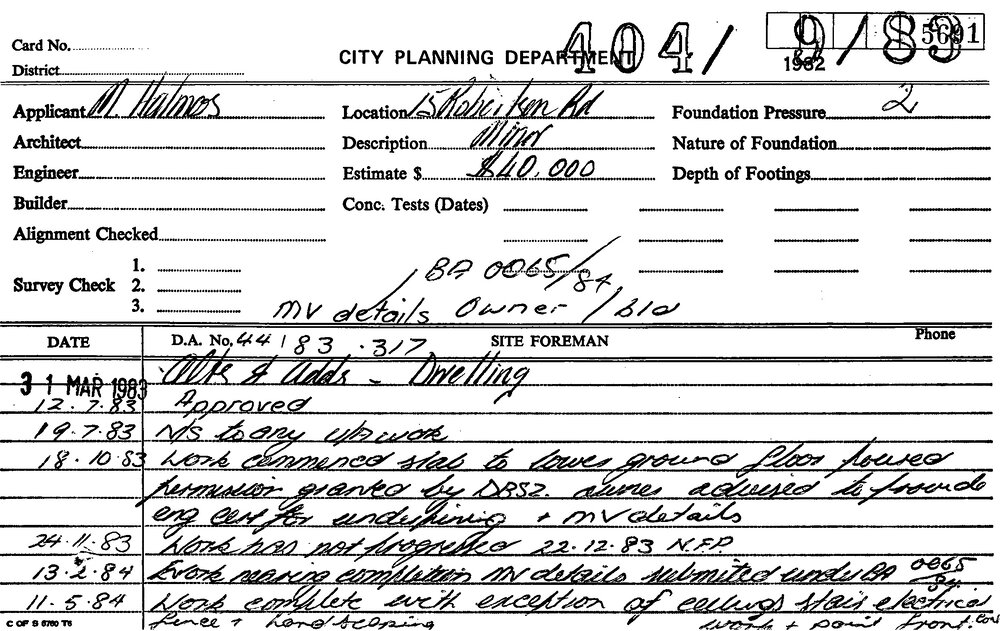 Card No.
District
CITY PLANNING DEPARTMENT
404/ 9/83
5691
1982
Applicant M. Halmos
Location 15 Robertson Rd
Foundation Pressure 2
Architect
Description Minor
Nature of Foundation
Engineer
Estimate $ $40,000
Depth of Footings
Builder
Conc. Tests (Dates)
Alignment Checked
Survey Check
1.
2.
3.
BA 0065/84
MV details Owner / bld
DATE
D.A. No. 44 / 83 . 317
SITE FOREMAN
Phone
31 MAR 1983 Alts & Adds - Dwelling
12.7.83 Approved
19.7.83 N/S to any work
18.10.83 Work commenced slab to lower ground floor poured
permission granted by DBS2. owner advised to provide
eng cert for underpining + MV details
24.11.83 Work has not progressed 22.12.83 N.F.P.
13.2.84 Work nearing completion MV details submitted under BA 0065/84
11.5.84 Work complete with exception of ceilings stair electrical
fence + landscaping work + paint front.
C OF S 8760 T6